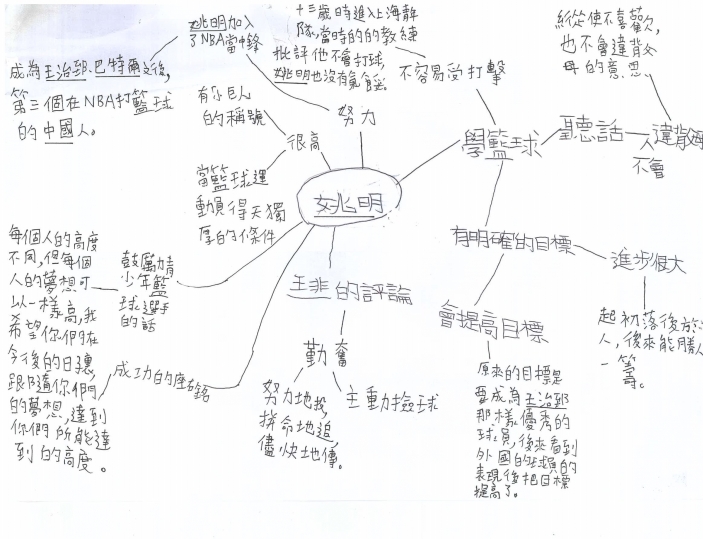 姚明加入
了NBA當中鋒
成為王治郅、巴特爾之後,
第三個在NBA打籃球
的中國人。
十三歲時進入上海青年
隊,當時的的教練
批評他不會打球,
姚明也沒有氣餒。
不容易受打擊
縱使不喜歡,
也不會違背父
母的意思。
有小巨人
的稱號
努力
很高
當籃球運
動員得天獨
厚的條件
學籃球
聽話
不會
違背
姚明
每個人的高度
不同,但每個
人的夢想可
以一樣高,我
希望你們在
今後的日子裏,
跟隨你們
的夢想,達到
你們所能達
到的高度。
鼓勵力青
少年籃
球選手
的話
成功的座右銘
王非的評論
勤奮
努力地投,
拼命地追,
儘快地傳。
主動撿球
有明確的目標
進步很大
起初落後於
人,後來能勝人
一籌。
會提高目標
原來的目標是
要成為王治郅
那樣優秀的
球員,後來看到
外國的球員的
表現後把目標
提高了。